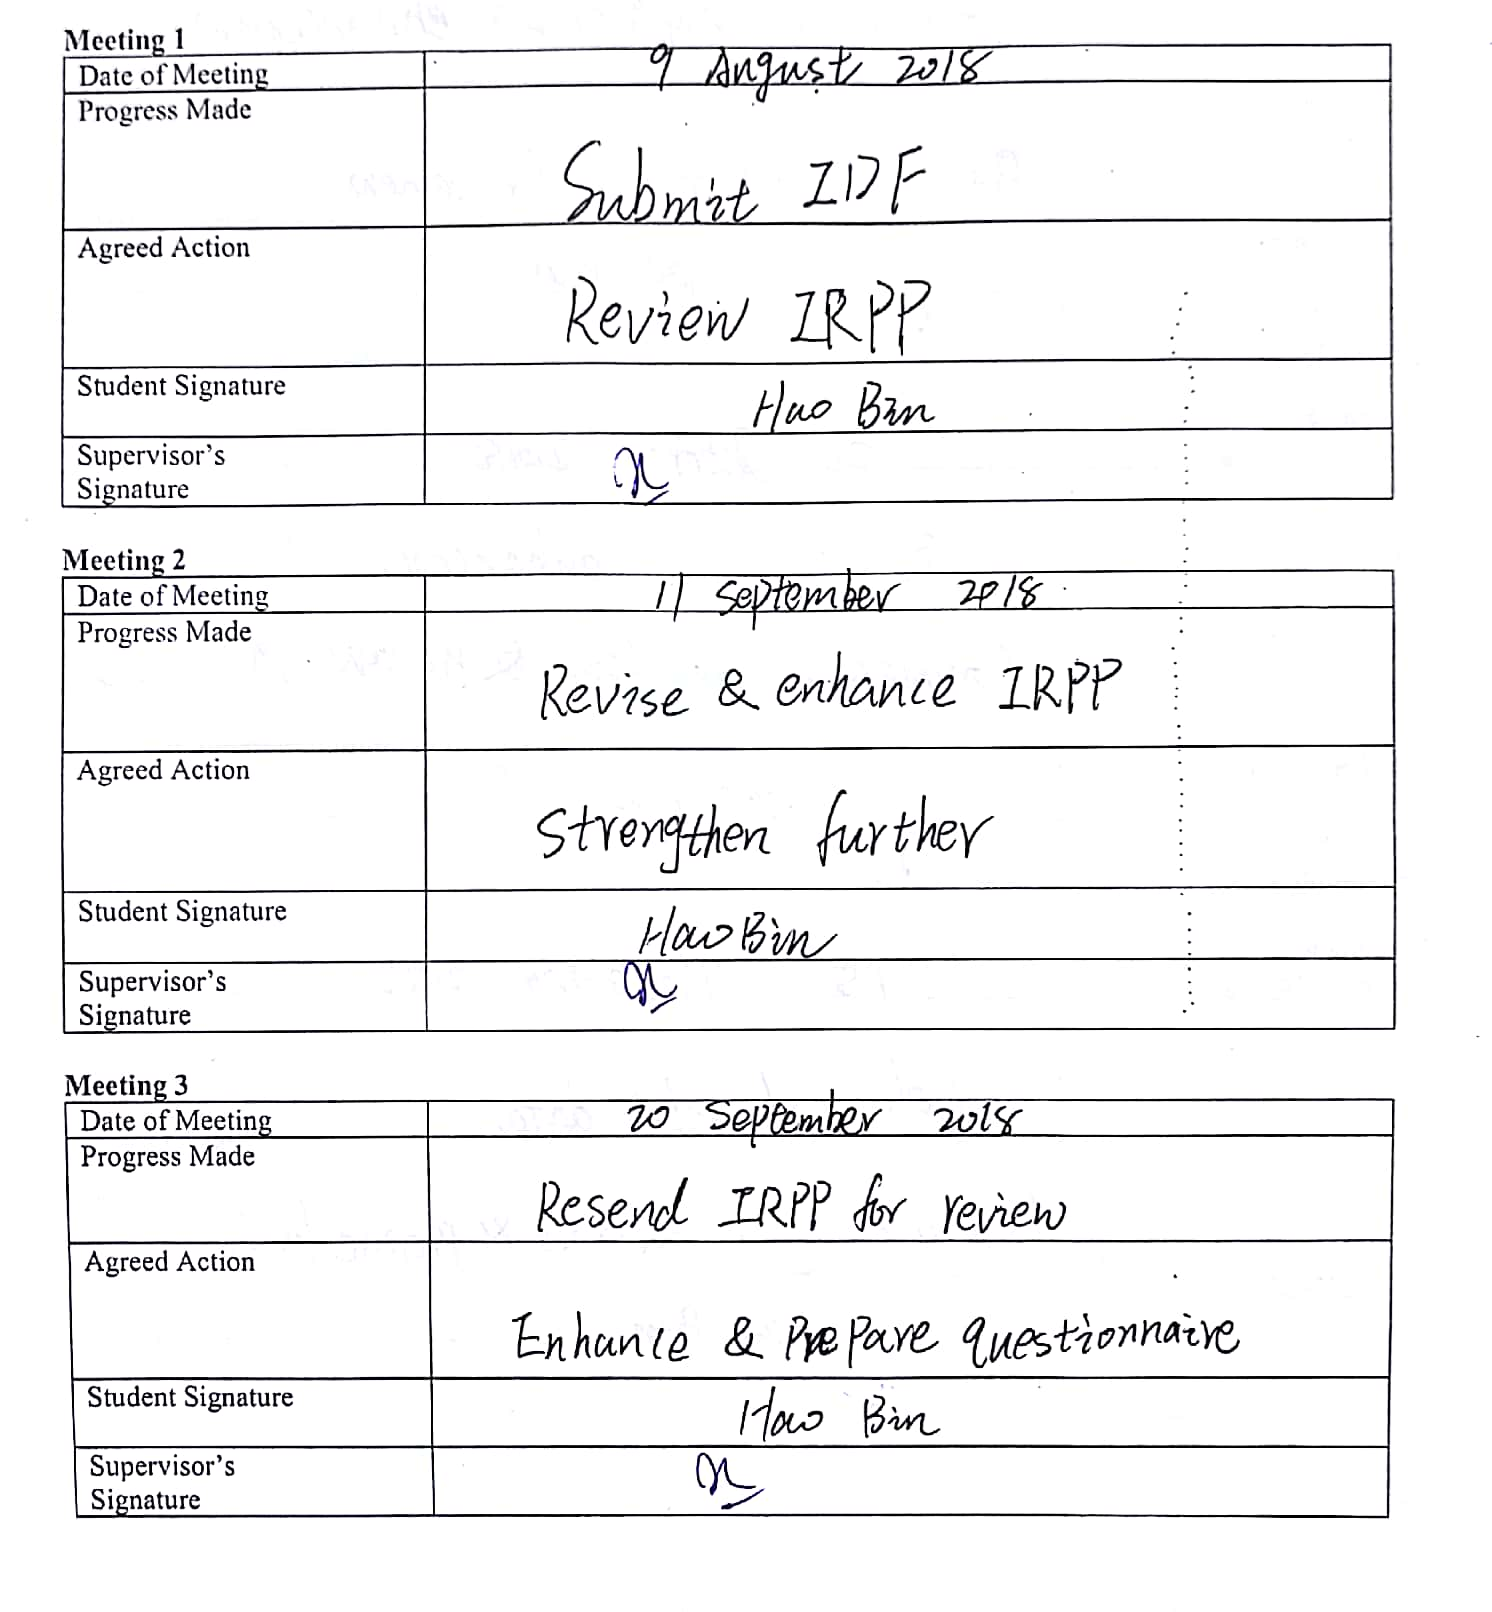 Meeting 1
Date of Meeting 9 August 2018
Progress Made
Submit IDF
Agreed Action
Review IRPP
Student Signature Hao Bin
Supervisor's
Signature
Meeting 2
Date of Meeting 11 September 2018
Progress Made
Revise & enhance IRPP
Agreed Action
Strengthen further
Student Signature Hao Bin
Supervisor's
Signature
Meeting 3
Date of Meeting 20 September 2018
Progress Made
Resend IRPP for review
Agreed Action
Enhance & Prepare questionnaire
Student Signature Hao Bin
Supervisor's
Signature